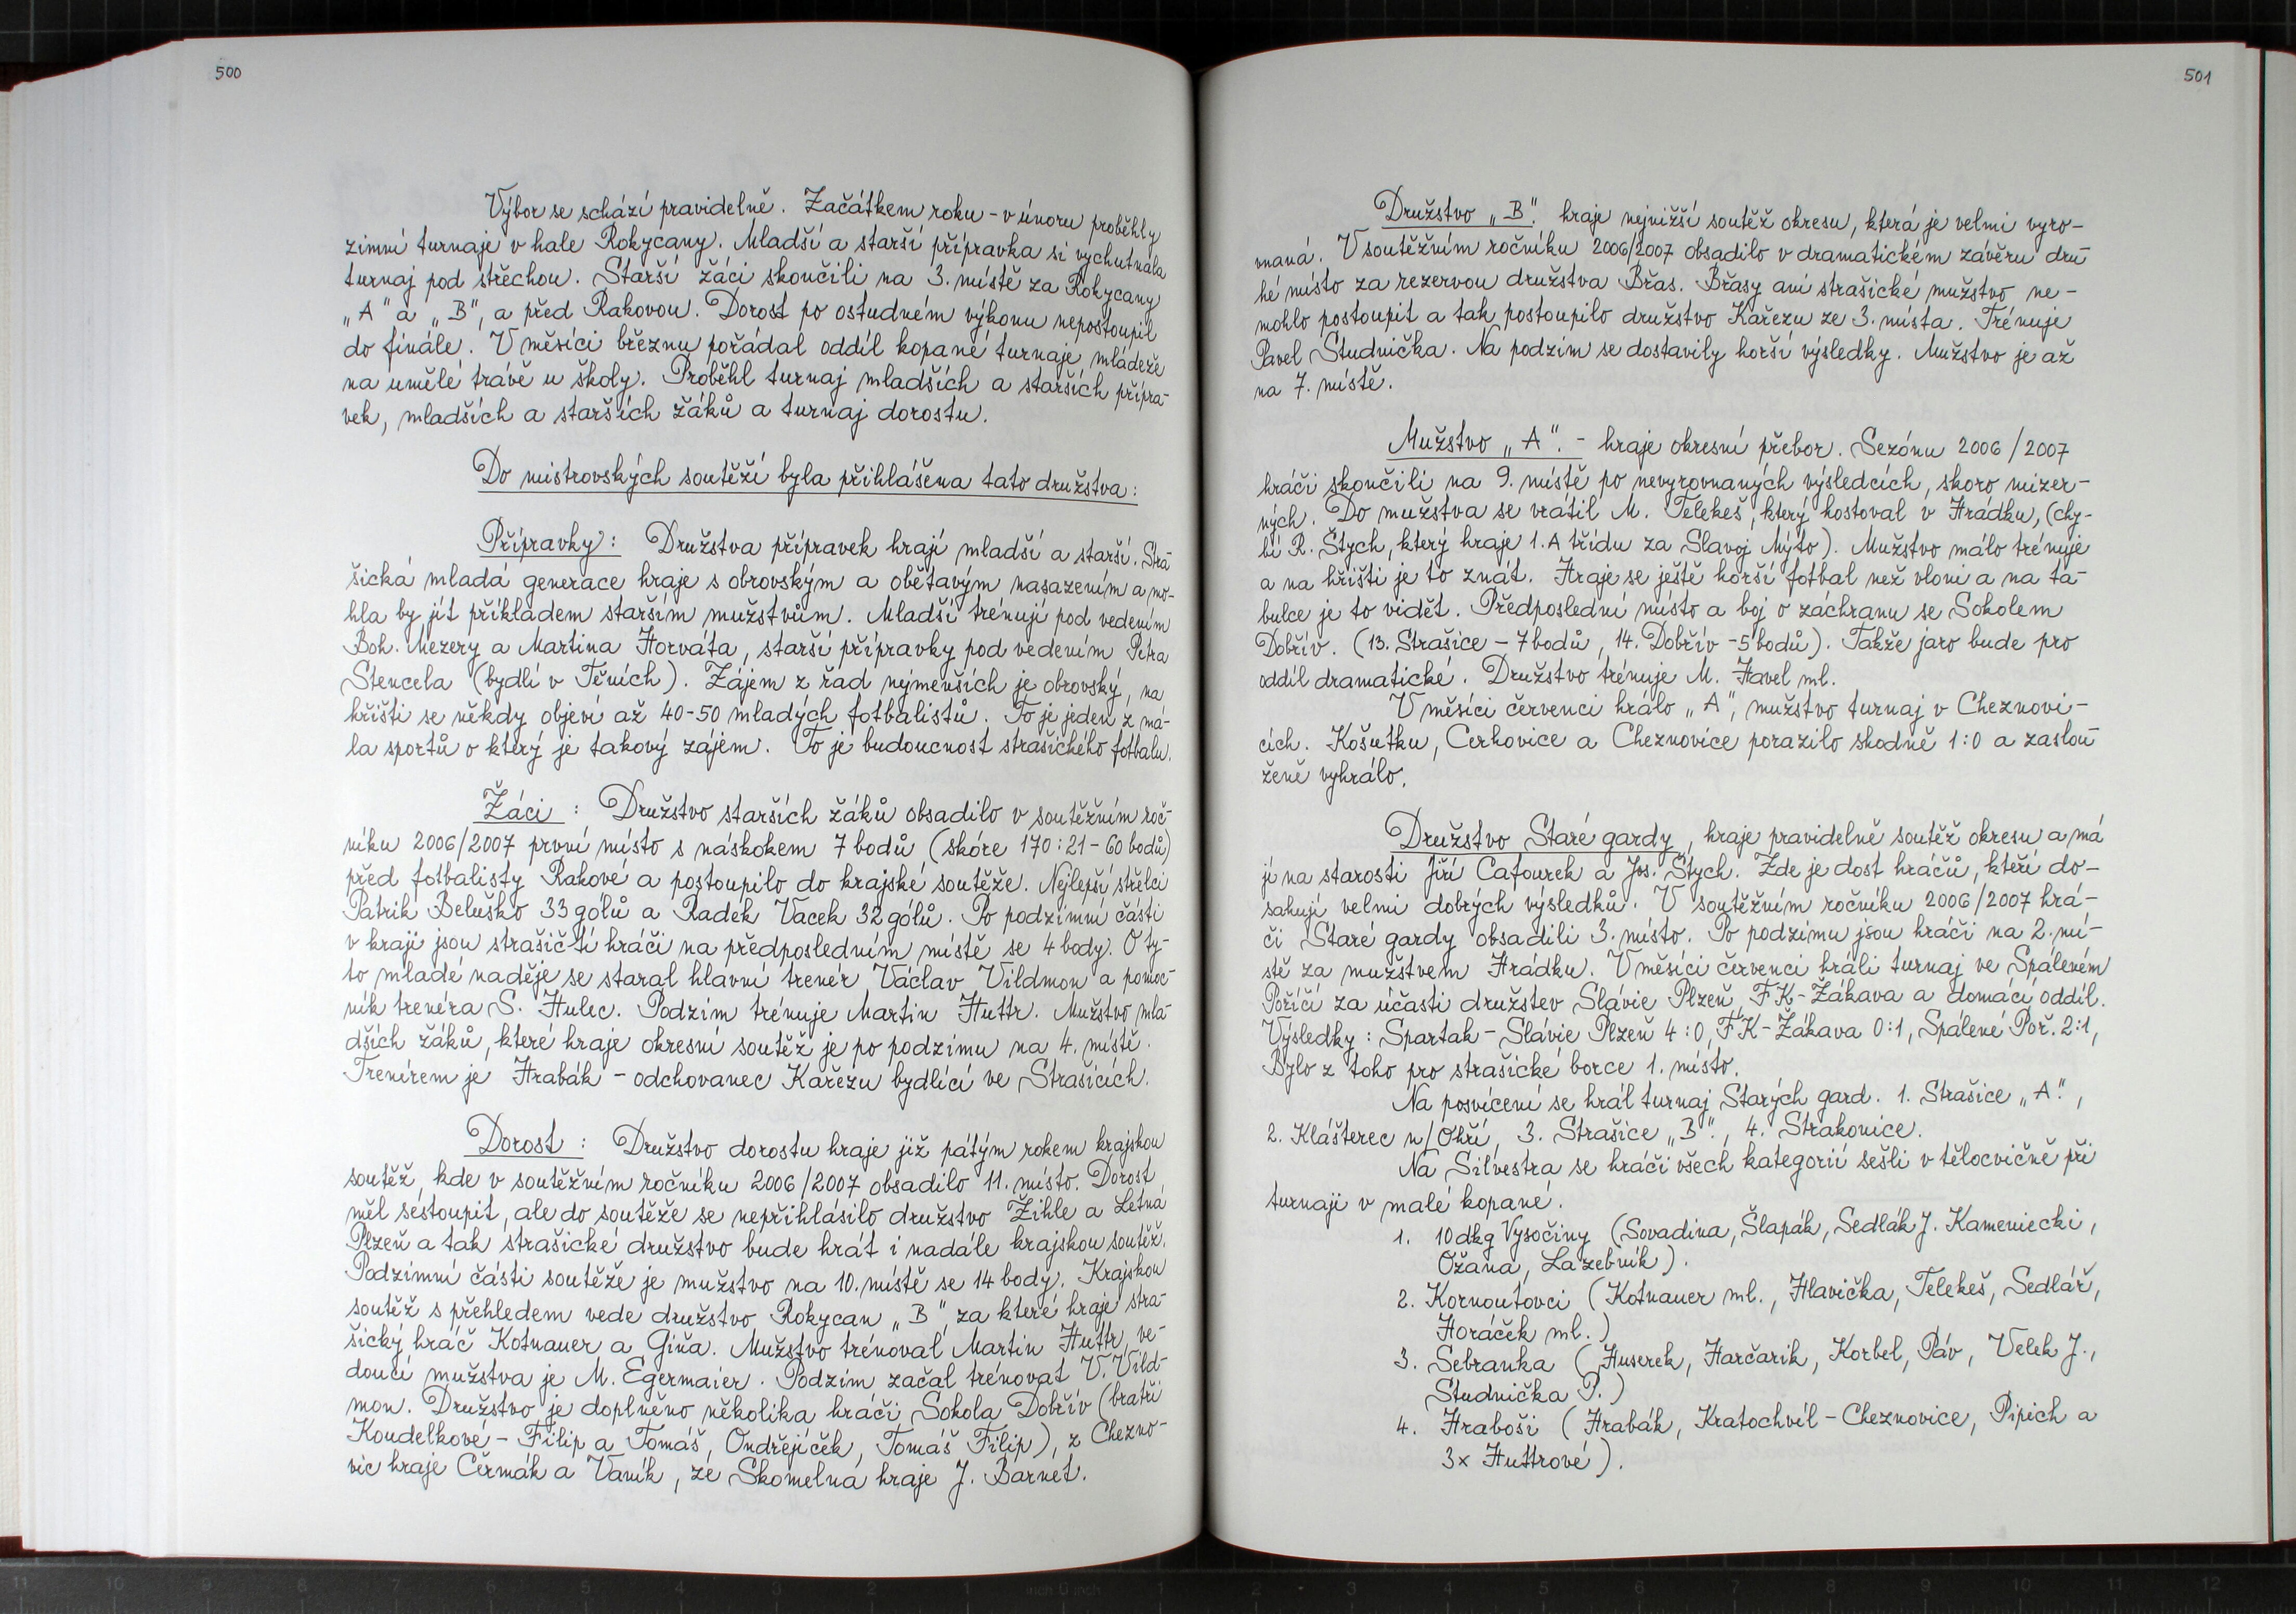 500
Výbor se schází pravidelně. Začátkem roku - v únoru proběhly
zimní turnaje v hale Rokycany. Mladší a starší přípravka si vychutnala
turnaj pod střechou. Starší žáci skončili na 3. místě za Rokycany
„A" a „B", a před Rakovou. Dorost po ostudném výkonu nepostoupil
do finále. V měsíci březnu pořádal oddíl kopané turnaje mládeže
na umělé trávě u školy. Proběhl turnaj mladších a starších přípra-
vek, mladších a starších žáků a turnaj dorostu.
Do mistrovských soutěží byla přihlášena tato družstva:
Přípravky: Družstva přípravek hrají mladší a starší. Stra-
šická mladá generace hraje s obrovským a obětavým nasazením a mo-
hla by jít příkladem starším mužstvům. Mladší trénují pod vedením
Boh. Mezery a Martina Horváta, starší přípravky pod vedením Petra
Stencela (bydlí v Těních). Zájem z řad nejmenších je obrovský, na
hřišti se někdy objeví až 40-50 mladých fotbalistů. To je jeden z má-
la sportů o který je takový zájem. To je budoucnost strašického fotbalu.
Žáci : Družstvo starších žáků obsadilo v soutěžním roč-
níku 2006/2007 první místo s náskokem 7 bodů (skóre 170:21 - 60 bodů)
před fotbalisty Rakové a postoupilo do krajské soutěže. Nejlepší střelci
Patrik Beluško 33 gólů a Radek Vacek 32 gólů. Po podzimní části
v kraji jsou strašičtí hráči na předposledním místě se 4 body. O ty-
to mladé naděje se staral hlavní trenér Václav Vildmon a pomoc-
ník trenéra S. Hulec. Podzim trénuje Martin Huttr. Mužstvo mla-
dších žáků, které hraje okresní soutěž je po podzimu na 4. místě.
Trenérem je Hrabák - odchovanec Kařezu bydlící ve Strašicích.
Dorost : Družstvo dorostu hraje již pátým rokem krajskou
soutěž, kde v soutěžním ročníku 2006/2007 obsadilo 11. místo. Dorost
měl sestoupit, ale do soutěže se nepřihlásilo družstvo Žihle a Letná
Plzeň a tak strašické družstvo bude hrát i nadále krajskou soutěž.
Podzimní části soutěže je mužstvo na 10. místě se 14 body. Krajskou
soutěž s přehledem vede družstvo Rokycan „B", za které hraje stra-
šický hráč Kotnauer a Giňa. Mužstvo trénoval Martin Huttr, ve-
doucí mužstva je M. Egermaier. Podzim začal trénovat V. Vild-
mon. Družstvo je doplněno několika hráči Sokola Dobřív (bratři
Koudelkové - Filip a Tomáš, Ondřejíček, Tomáš Filip), z Chezno-
vic hraje Čermák a Vaník, ze Skomelna hraje J. Barnet.
501
Družstvo „B". hraje nejnižší soutěž okresu, která je velmi vyro-
vnaná. V soutěžním ročníku 2006/2007 obsadilo v dramatickém závěru dru-
hé místo za rezervou družstva Břas. Břasy ani strašické mužstvo ne-
mohlo postoupit a tak postoupilo družstvo Kařezu ze 3. místa. Trénuje
Pavel Studnička. Na podzim se dostavily horší výsledky. Mužstvo je až
na 7. místě.
Mužstvo „A". - hraje okresní přebor. Sezónu 2006/2007
hráči skončili na 9. místě po nevyrovnaných výsledcích, skoro mizer-
ných. Do mužstva se vrátil M. Telekeš, který hostoval v Hrádku, (chy-
bí R. Štych, který hraje 1.A třídu za Slavoj Mýto). Mužstvo málo trénuje
a na hřišti je to znát. Hraje se ještě horší fotbal než vloni a na ta-
bulce je to vidět. Předposlední místo a boj o záchranu se Sokolem
Dobřív. (13. Strašice - 7 bodů, 14. Dobřív - 5 bodů). Takže jaro bude pro
oddíl dramatické. Družstvo trénuje M. Havel ml.
V měsíci červenci hrálo „A", mužstvo turnaj v Cheznovi-
cích. Košutku, Cerhovice a Cheznovice porazilo shodně 1:0 a zaslou-
ženě vyhrálo.
Družstvo Staré gardy, hraje pravidelně soutěž okresu a má
ji na starosti Jiří Cafourek a Jos. Štych. Zde je dost hráčů, kteří do-
sahují velmi dobrých výsledků. V soutěžním ročníku 2006/2007 hrá-
či Staré gardy obsadili 3. místo. Po podzimu jsou hráči na 2. mí-
stě za mužstvem Hrádku. V měsíci červenci hráli turnaj ve Spáleném
Poříčí za účasti družstev Slávie Plzeň, FK-Žákava a domácí oddíl.
Výsledky: Spartak - Slávie Plzeň 4:0, FK-Žákava 0:1, Spálené Poř. 2:1,
Bylo z toho pro strašické borce 1. místo.
Na posvícení se hrál turnaj Starých gard. 1. Strašice „A".,
2. Klášterec n/Ohří, 3. Strašice „B"., 4. Strakonice.
Na Silvestra se hráči všech kategorií sešli v tělocvičně při
turnaji v malé kopané.
1. 10 dkg Vysočiny (Sovadina, Šlapák, Sedlák J. Kameniecki,
Ožana, Lazebník).
2. Kornoutovci (Kotnauer ml., Hlavička, Telekeš, Sedlář,
Horáček ml.)
3. Sebranka (Huserek, Harčarik, Korbel, Páv, Velek J.,
Studnička P.)
4. Hraboši (Hrabák, Kratochvíl - Cheznovice, Pipich a
3x Huttrové).